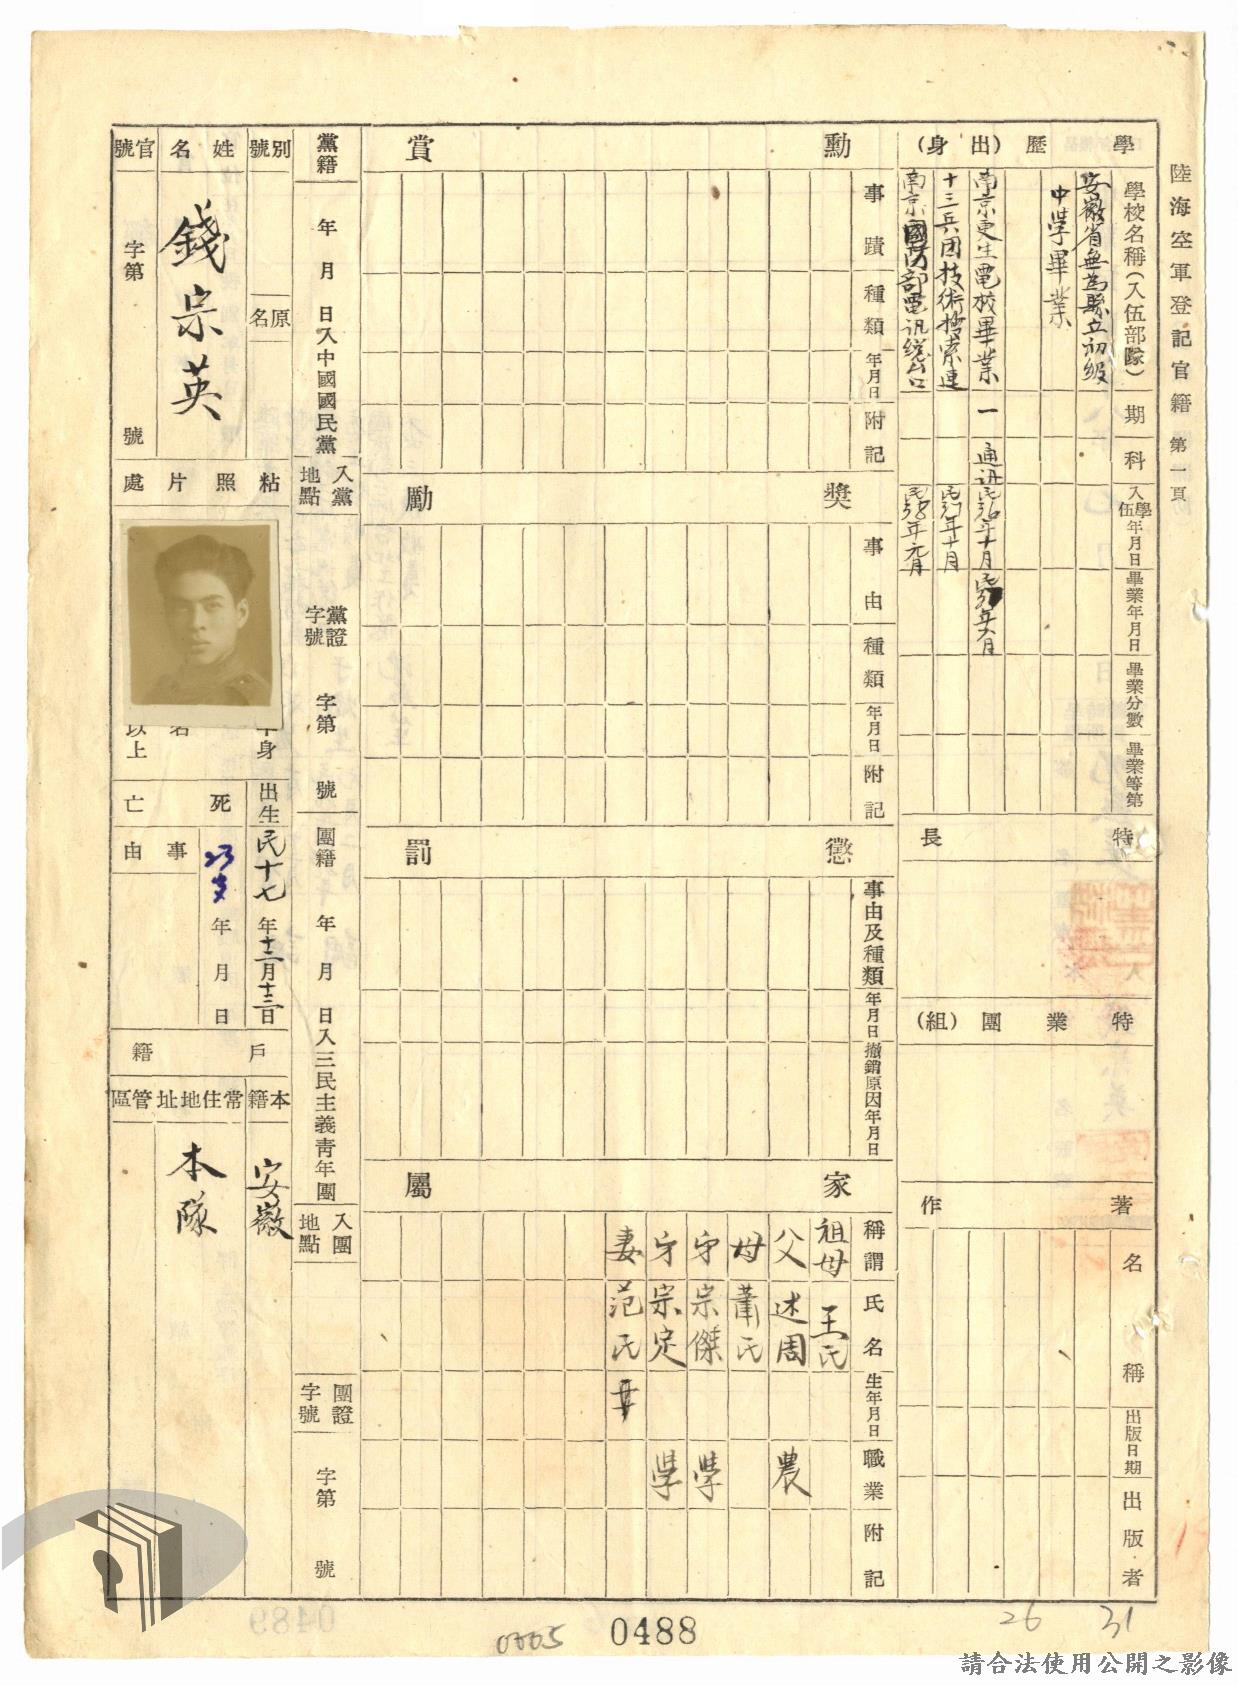 陸海空軍登記官籍 第一頁
學歷(出身)
學校名稱(入伍部隊)
期
科
入學伍年月日
畢業年月日
畢業分數
畢業等第
安徽省無為縣立初級
中學畢業
南京更生電校畢業
一
通訊
民36年十月
十三兵团技術搜索連
民37年十月
南京國防部電讯總台
民38年元月
特長
特業團(組)
著作
名稱
出版日期
出版者
勳賞
事蹟
種類
年月日
附記
獎勵
事由
種類
年月日
附記
懲罰
事由及種類
年月日
撤銷原因年月日
家屬
稱謂
氏名
生年月日
職業
附記
祖母 王氏
父 述周 農
母 蕭氏
弟 宗傑 學
弟 宗定 學
妻 范氏
黨籍 年 月 日入中國國民黨
入黨地點
黨證字號 字第 號
團籍 年 月 日入三民主義青年團
入團地點
團證字號 字第 號
別號
原名
姓名
錢宗英
官號
字第 號
粘照片處
半身
名
以上
出生
民十七年十二月十三日
死亡
年 月 日
事由
戶籍
本籍
安徽
常住地址
本隊
管區
0488
26
31
0489
請合法使用公開之影像